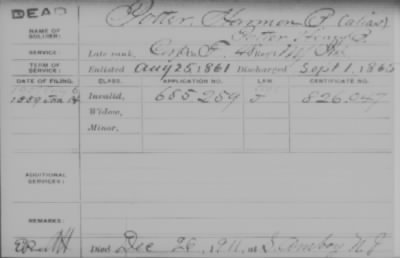 DEAD
NAME OF SOLDIER: Potter, Harmon P. (alias)
Potter, Henry P.
SERVICE: Late rank, F,
TERM OF SERVICE: Enlisted Aug 25, 1861 Discharged Sept 1, 1865
DATE OF FILING. CLASS. APPLICATION NO. LAW. CERTIFICATE NO.
1889 Jan 14 Invalid, 685259 826.047
Widow,
Minor,
ADDITIONAL SERVICES:
REMARKS:
Died Dec 26, 1911, at S. Amboy N J